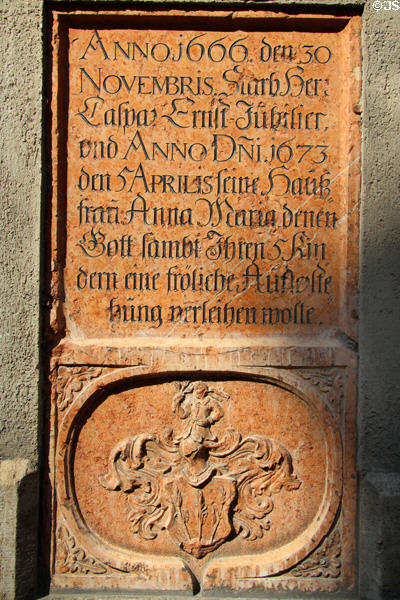 ©JS
ANNO.1666. den 30
NOVEMBRIS. Starb Her:
Caspar Ernst Jubilier,
vnd ANNO DÑI.1673
den 5 APRILIS seine Hauß
frau: Anna Maria denen
Gott sambt Ihren 5 Kin
dern eine fröliche Aufferste
hung verleihen wolle.